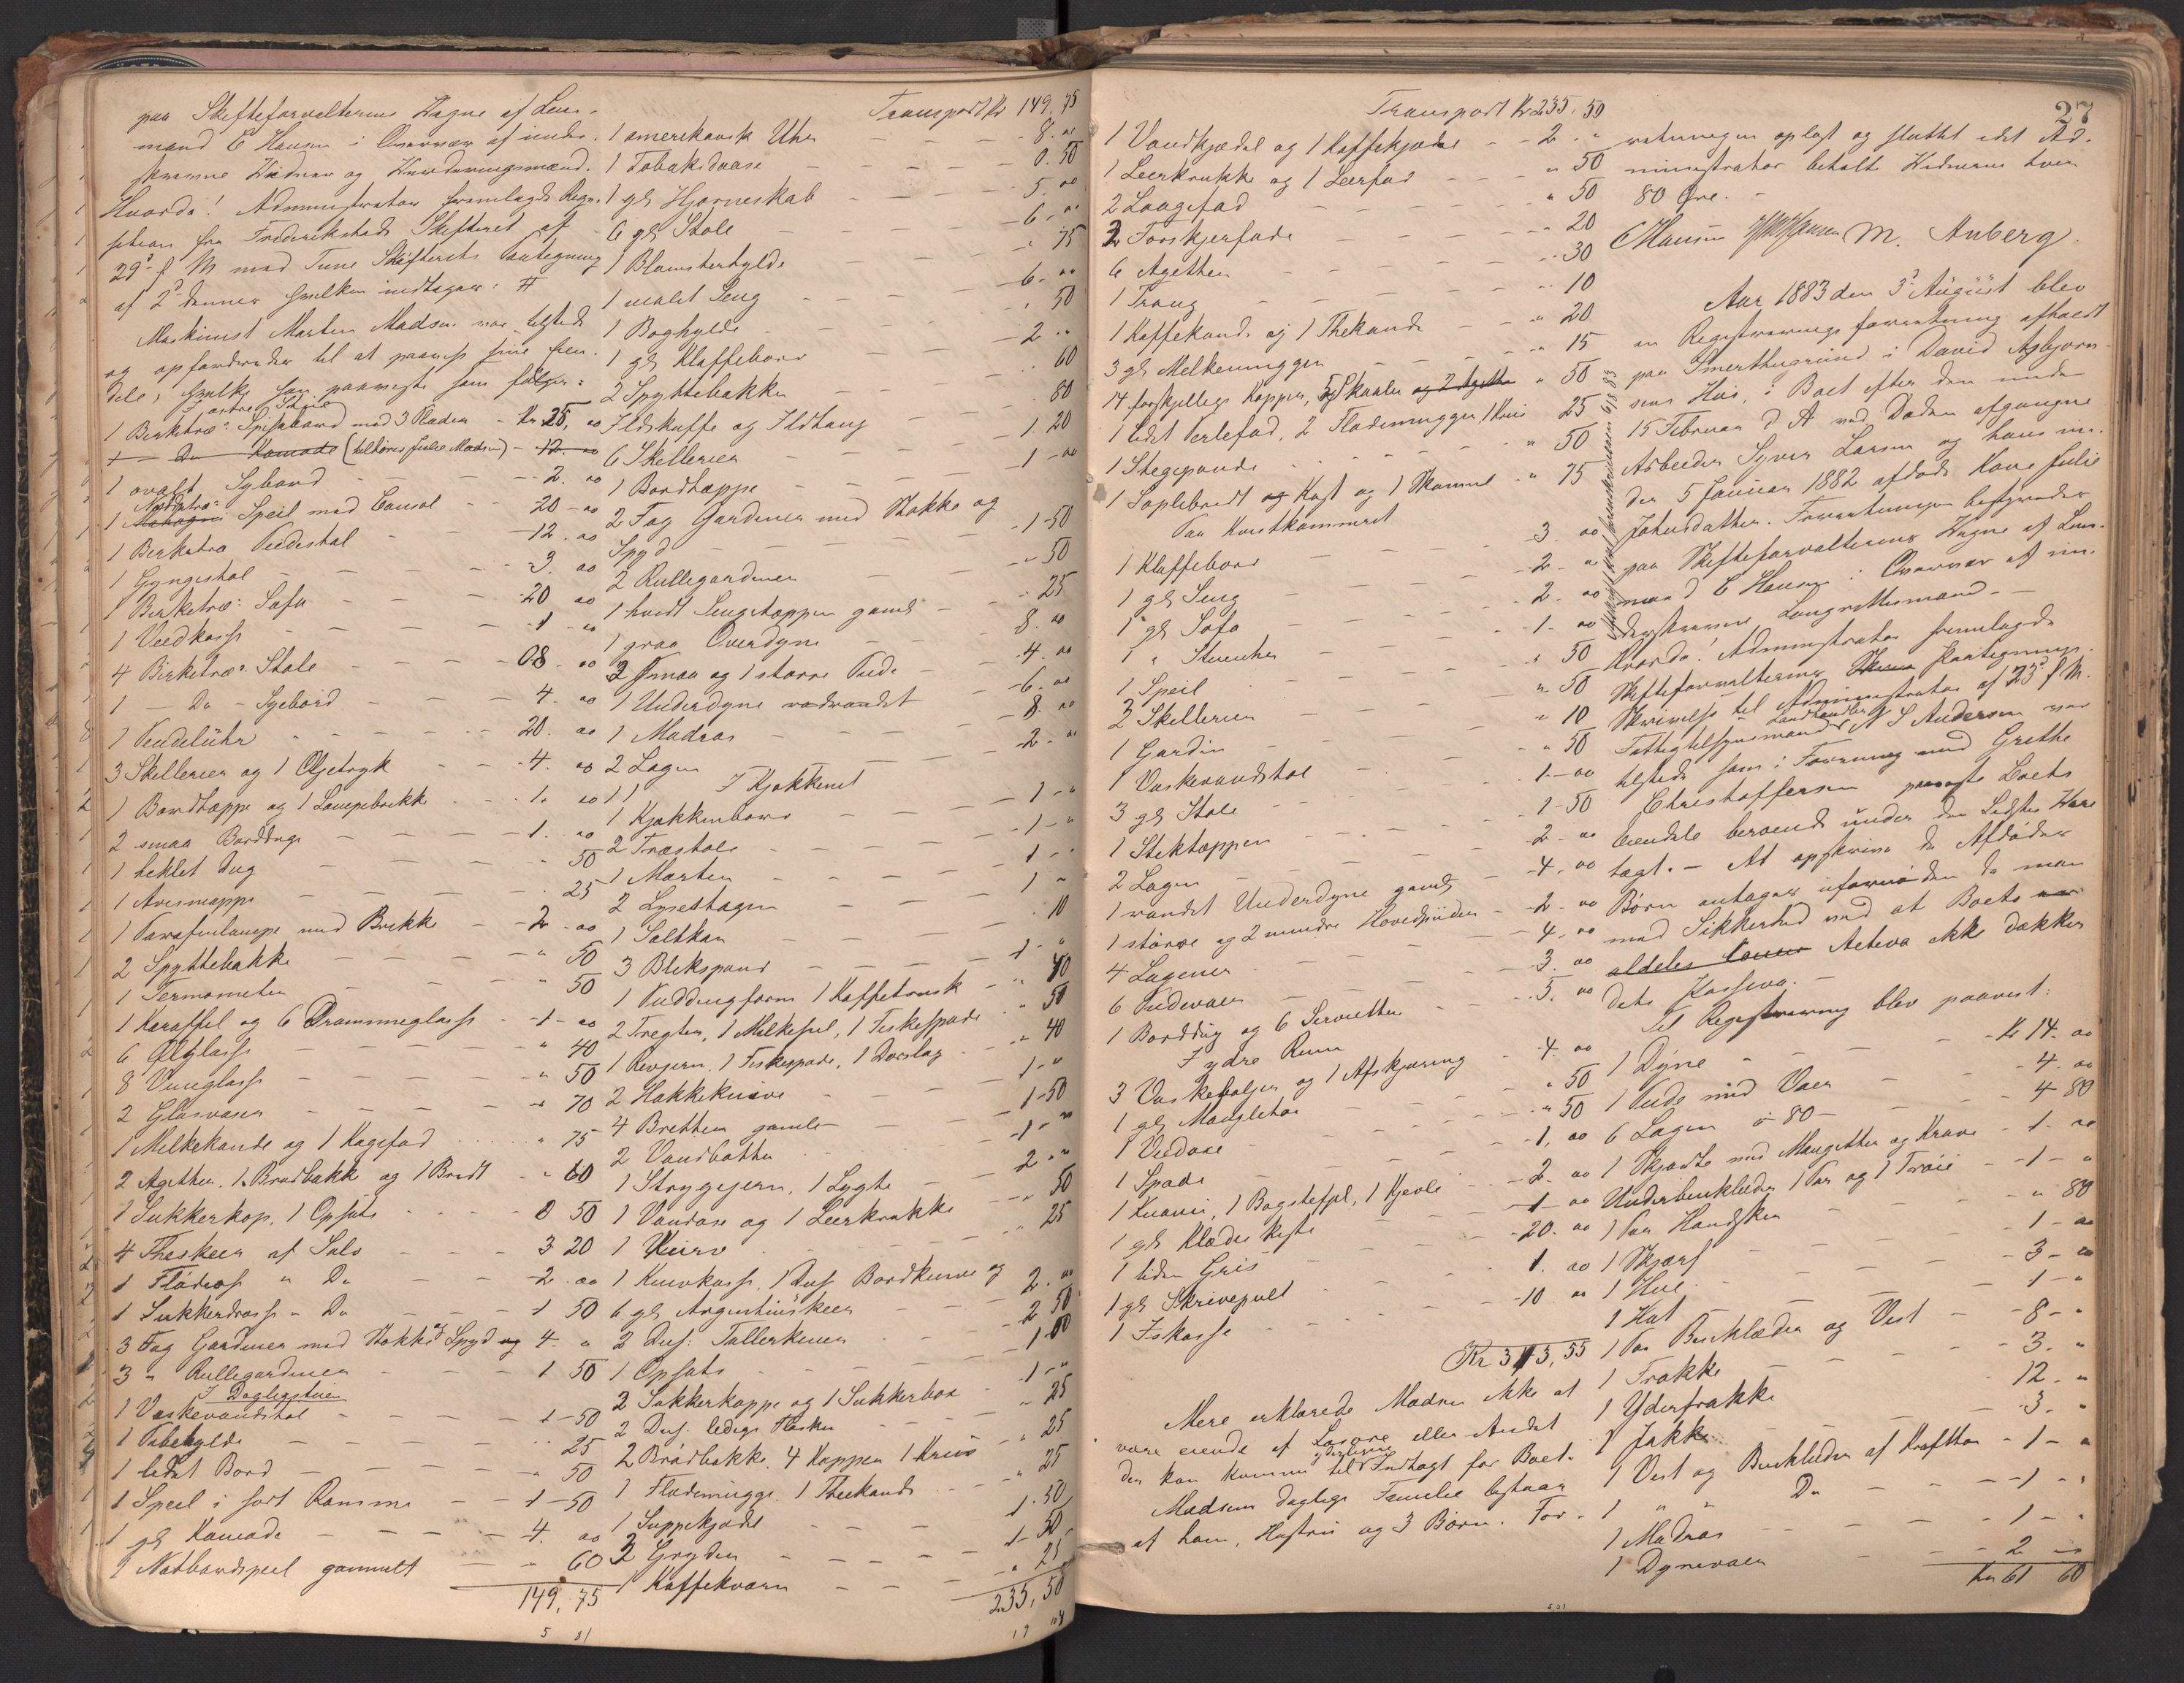 paa Skifteforvalterens Vegne af Lens-
mand C Hansen i Overvær af unde-
skrevne Vidner og Vurderingsmænd.
Hvorda! Administrator fremlagde Requi-
sition fra Frederikstads Skifteret af
29de f M med Tune Skifterets Paategning
af 2den dennes hvilken indtages: #
Maskinist Martin Madsen var tilstede
og opfordredes til at paavise sine Eien-
dele, hvilke han paaviste som følger:
I østre Stue
1 Birketræs Spisebord med 3 Plader - Kr 25, 00
1 - Do Komode (tilhører Julie Madsen) - 12. 00
1 ovalt Sybord - 2. 00
1 Mahogni Nøddetræs Speil med Consol - 20 - 00
1 Birketræ Piedestal - 12. 00
1 Gyngestol - 3. 00
1 Birketræs Sofa - 20 00
1 Vedkasse - 1 - 00
4 Birketræs Stole - 08. 00
1 - Do - Syebord - 4. 00
1 Pendeluhr - 20. 00
3 Skillerier og 1 Oljetryk - 4. 00
1 Bordtæppe og 1 Lampebrikke - 1. 00
2 smaa Bordduge - 1. 00
1 heklet Dug - 50
1 Avismappe - 25
1 Parafinlampe med Brikke - 2. 00
2 Spyttebakke - " 50
1 Termometer - " 50
1 Karaffel og 6 Drammeglasse - 1 - 00
6 Ølglasse - " 40
8 Vinglasse - " 50
2 Glasvaser - " 70
1 Melkekande og 1 Kagefad - " 75
2 Asjetter, 1 Brødbakke og 1 Brødt - " 60
1 Sukkerkop, 1 Opsats - 0 50
4 Theskeer af Sølv - 3 20
1 Flødeøse " Do - 2. 00
1 Sukkerdrøsse " Do - 1 50
3 Fag Gardiner med Stokke og Spyd og 4. "
3 " Rullegardiner - 1 50
I Dagligstuen
1 Vaskevandstol - 1 - 50
1 Pibehylde - 25
1 lidet Bord - " 50
1 Speil i sort Ramme - 1 - 50
1 gl Komode - 4. 00
1 Natbordspeil gammelt - " 60
149, 75
Transport Kr 149. 75
1 amerikansk Uhr - 8. 00
1 Tobaksdaase - 0. 50
1 gl Hjørneskab - 5. 00
6 gl Stole - 6. 00
1 Blomsterhylde - " 75
1 malet Seng - 6. 00
1 Boghylde - " 50
1 gl Klaffebord - 2 "
2 Spyttebakker - 60
Ildskuffe og Ildtang - 80
6 Skillerier - 1. 20
1 Bordtæppe - 1 - 00
2 Fag Gardiner med Stokke og
Spyd - 1 - 50
2 Rullegardiner - " 50
1 hvidt Sengetæppe gamelt - " 25
1 graa Overdyne - 8. 00
2 smaa og 1 større Pude - 4. 00
1 Underdyne rødrandet - 6. 00
1 Madras - 8. 00
2 Lagen - 2. "
I Kjøkkenet
1 Kjøkkenbord - 1 - "
2 Træstole - 1 - "
1 Morter - 1 "
2 Lysestager - 1 "
1 Saltkar - 10
3 Blikspand - 1 "
1 Puddingform 1 Kaffetrask - 40
2 Tregter, 1 Melkesil, 1 Fiskespade - " 50
1 Rivjern, 1 Fiskespade, 1 Dørslag - " 40
2 Hakkeknive - 1 - "
4 Bretter gamle - 1 - 50
2 Vandbøtter - 1 - "
1 Strygejern, 1 Lygte - 2 "
1 Vandøse og 1 Leerkrukke - 50
1 Kurv - 25
1 Knivkasse, 1 Dus Bordknive og
6 gl Argentinskeer - 2. "
2 Dus: Tallerkener - 2 50
1 Opsats - 1 - 00
2 Sukkerkoppe og 1 Sukkerbox - 1 - "
2 Dus: ledige Flasker - " 25
2 Brødbakke, 4 Kopper 1 Krus - " 25
1 Flødemugge, 1 Theekande - " 25
1 Suppekjedel - 1. 50
2 Gryder - 1 - 50
1 Kaffekværn - " 25
235, 50
27
Transport Kr 235. 50
1 Vandkjædel og 1 Kaffekjedel - 2. "
1 Leerkrukke og 1 Leerfad - " 50
2 Laagefad - " 50
2 Torskjerfade - " 20
6 Asjetter - " 30
1 Traug - " 10
1 Kaffekande og 1 Thekande - " 20
3 gl Melkemugger - " 15
14 forskjellige Kopper, 5 Skaaler og 2 Asjetter " 50
1 lidet Perlefad, 2 Flødemugger 1 Krus 25
1 Stegepande - " 50
1 Soplebredt og Kost og 1 Skammel " 75
Paa Kvistkammeret
1 Klaffebord - 3. 00
1 gl Seng - 2. "
1 gl Sofa - 2. 00
1 " Stueuhr - 1. 00
1 Speil - " 50
2 Skillerier - " 50
1 Gardin - " 10
1 Vaskevandstol - " 50
3 gl Stole - 1 - 00
1 Stiktæppe - 1 - 50
2 Lagen - 2. 00
1 randet Underdyne gamel - 4. 00
1 større og 2 mindre Hovedpuder - 2. 00
4 Lagener - 4. 00
6 Pudevaar - 3. 00
1 Borddug og 6 Servietter - 5. 00
I ydre Rum
3 Vaskebaljer og 1 Afskjæring - 4. 00
1 gl Mangletræ - " 50
1 Vedøxe - " 50
1 Spade - 1. 00
1 Knarii, 1 Bagstefjel, 1 Kjevle - 2. 00
1 gl Klædeskiste - 1 - 00
1 liden Gris - 20. 00
1 gl Skrivepult - 1. 00
1 Iskasse - 10 00
Kr 313, 55
Mere erklærede Madsen ikke at
være eiende af Løsøre eller Andet
der kan komme yderligere til Indtægt for Boet.
Madsens daglige Familie bestaar
af ham, Hustru og 3 Børn. For-
retningen oplæst og sluttet idet Ad-
ministrator betalte Vidnerne hver
80 Øre. -
C Hansen M. Anberg.
Aar 1883 den 3de August blev
en Registreringsforretning afholdt
paa Smertugrund i David Asbjørn-
sens Hus, i Boet efter den under
15 Februar d A ved Døden afgangne
Arbeider Syver Larsen og hans un-
der 5 Januar 1882 afdøde Kone Julie
Johnsdatter. Forretningen bestyredes
paa Skifteforvalterens Vegne af Lens-
mand C Hansen i Overvær af un-
derskrevne Laugrettesmænd. -
Hvorda! Administrator fremlagde
Skifteforvalterens Paategnings-
Skrivelse til Administrator af 23de f M.
Fattigtilsynsmand Landhandler N S Andersen var
tilstede som i Forening med Grethe
Christoffersen paaviste Boets
Eiendele beroende under den Sidstes Vare
tægt. - At opskrive de Afdødes
Børn antages ufornøden da man
med Sikkerhed ved at Boets
aldeles Activa ikke dækker
dets Passiva. -
Til Registrering blev paavist:
1 Dyne - Kr 14. 00
1 Pude med Vaar - 4. 00
6 Lagen á 80 - 4 80
1 Skjorte med Mangetter og Krave - 1. 00
Underbenklæder 1 Par og 1 Trøie - 1 - "
1 Par Handsker - " 80
1 Skjærf - 1 - 00
1 Hue - 3 - 00
1 Hat - 1 - "
1 Par Benklæder og Vest - 8 - "
1 Frakke - 3. "
1 Yderfrakke - 12. "
1 Jakke - 3. "
1 Vest og Benklæder af Kraftto - 1 - "
1 " " Do - 1 - "
1 Madras - 1 - "
1 Dynevaar - 2 -
Kr 61 60